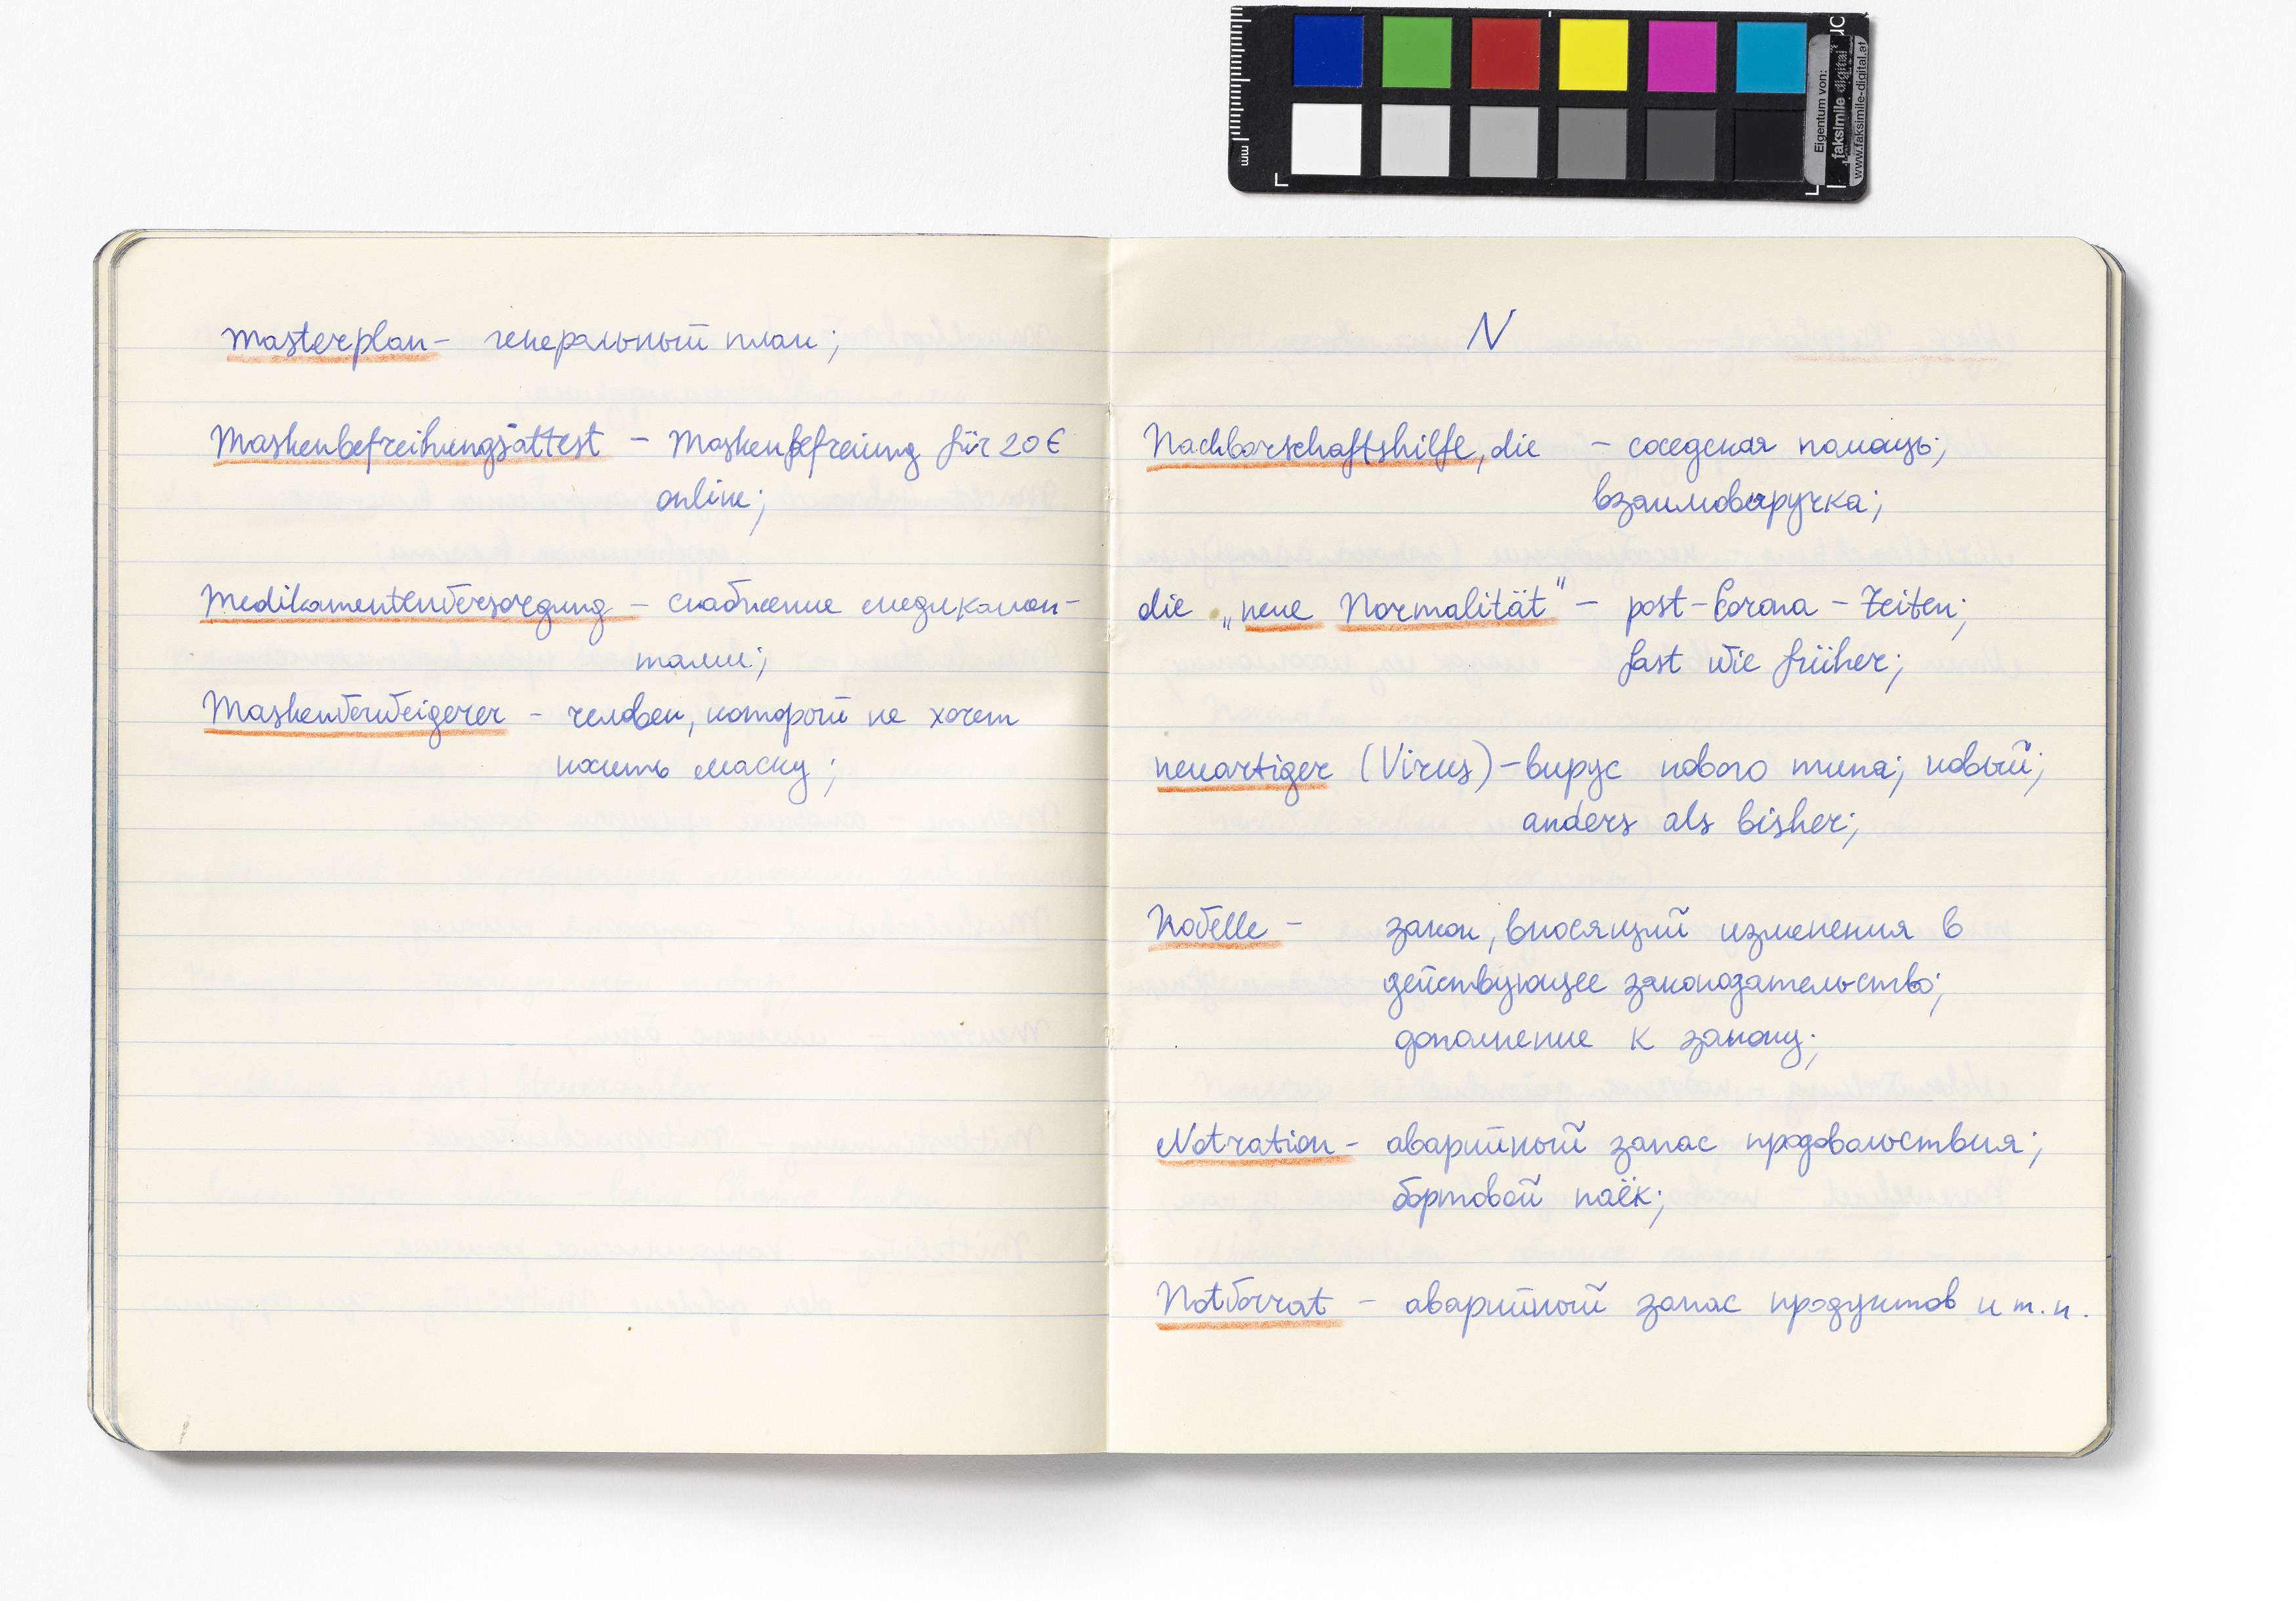 Masterplan – генеральный план;
Maskenbefreihungsattest – Maskenbefreiung für 20 €
online;
Medikamentenversorgung – снабжение медикамен-
тами;
Maskenverweigerer – человек, который не хочет
носить маску;
N
Nachbarschaftshilfe, die – соседская помощь;
взаимовыручка;
die „neue Normalität" – post-Corona-Zeiten;
fast wie früher;
neuartiger (Virus) – вирус нового типа; новый;
anders als bisher;
Novelle – закон, вносящий изменения в
действующее законодательство;
дополнение к закону;
Notration – аварийный запас продовольствия;
бортовой паёк;
Notvorrat – аварийный запас продуктов и т. п.
mm
Eigentum von:
faksimile digital
www.faksimile-digital.at